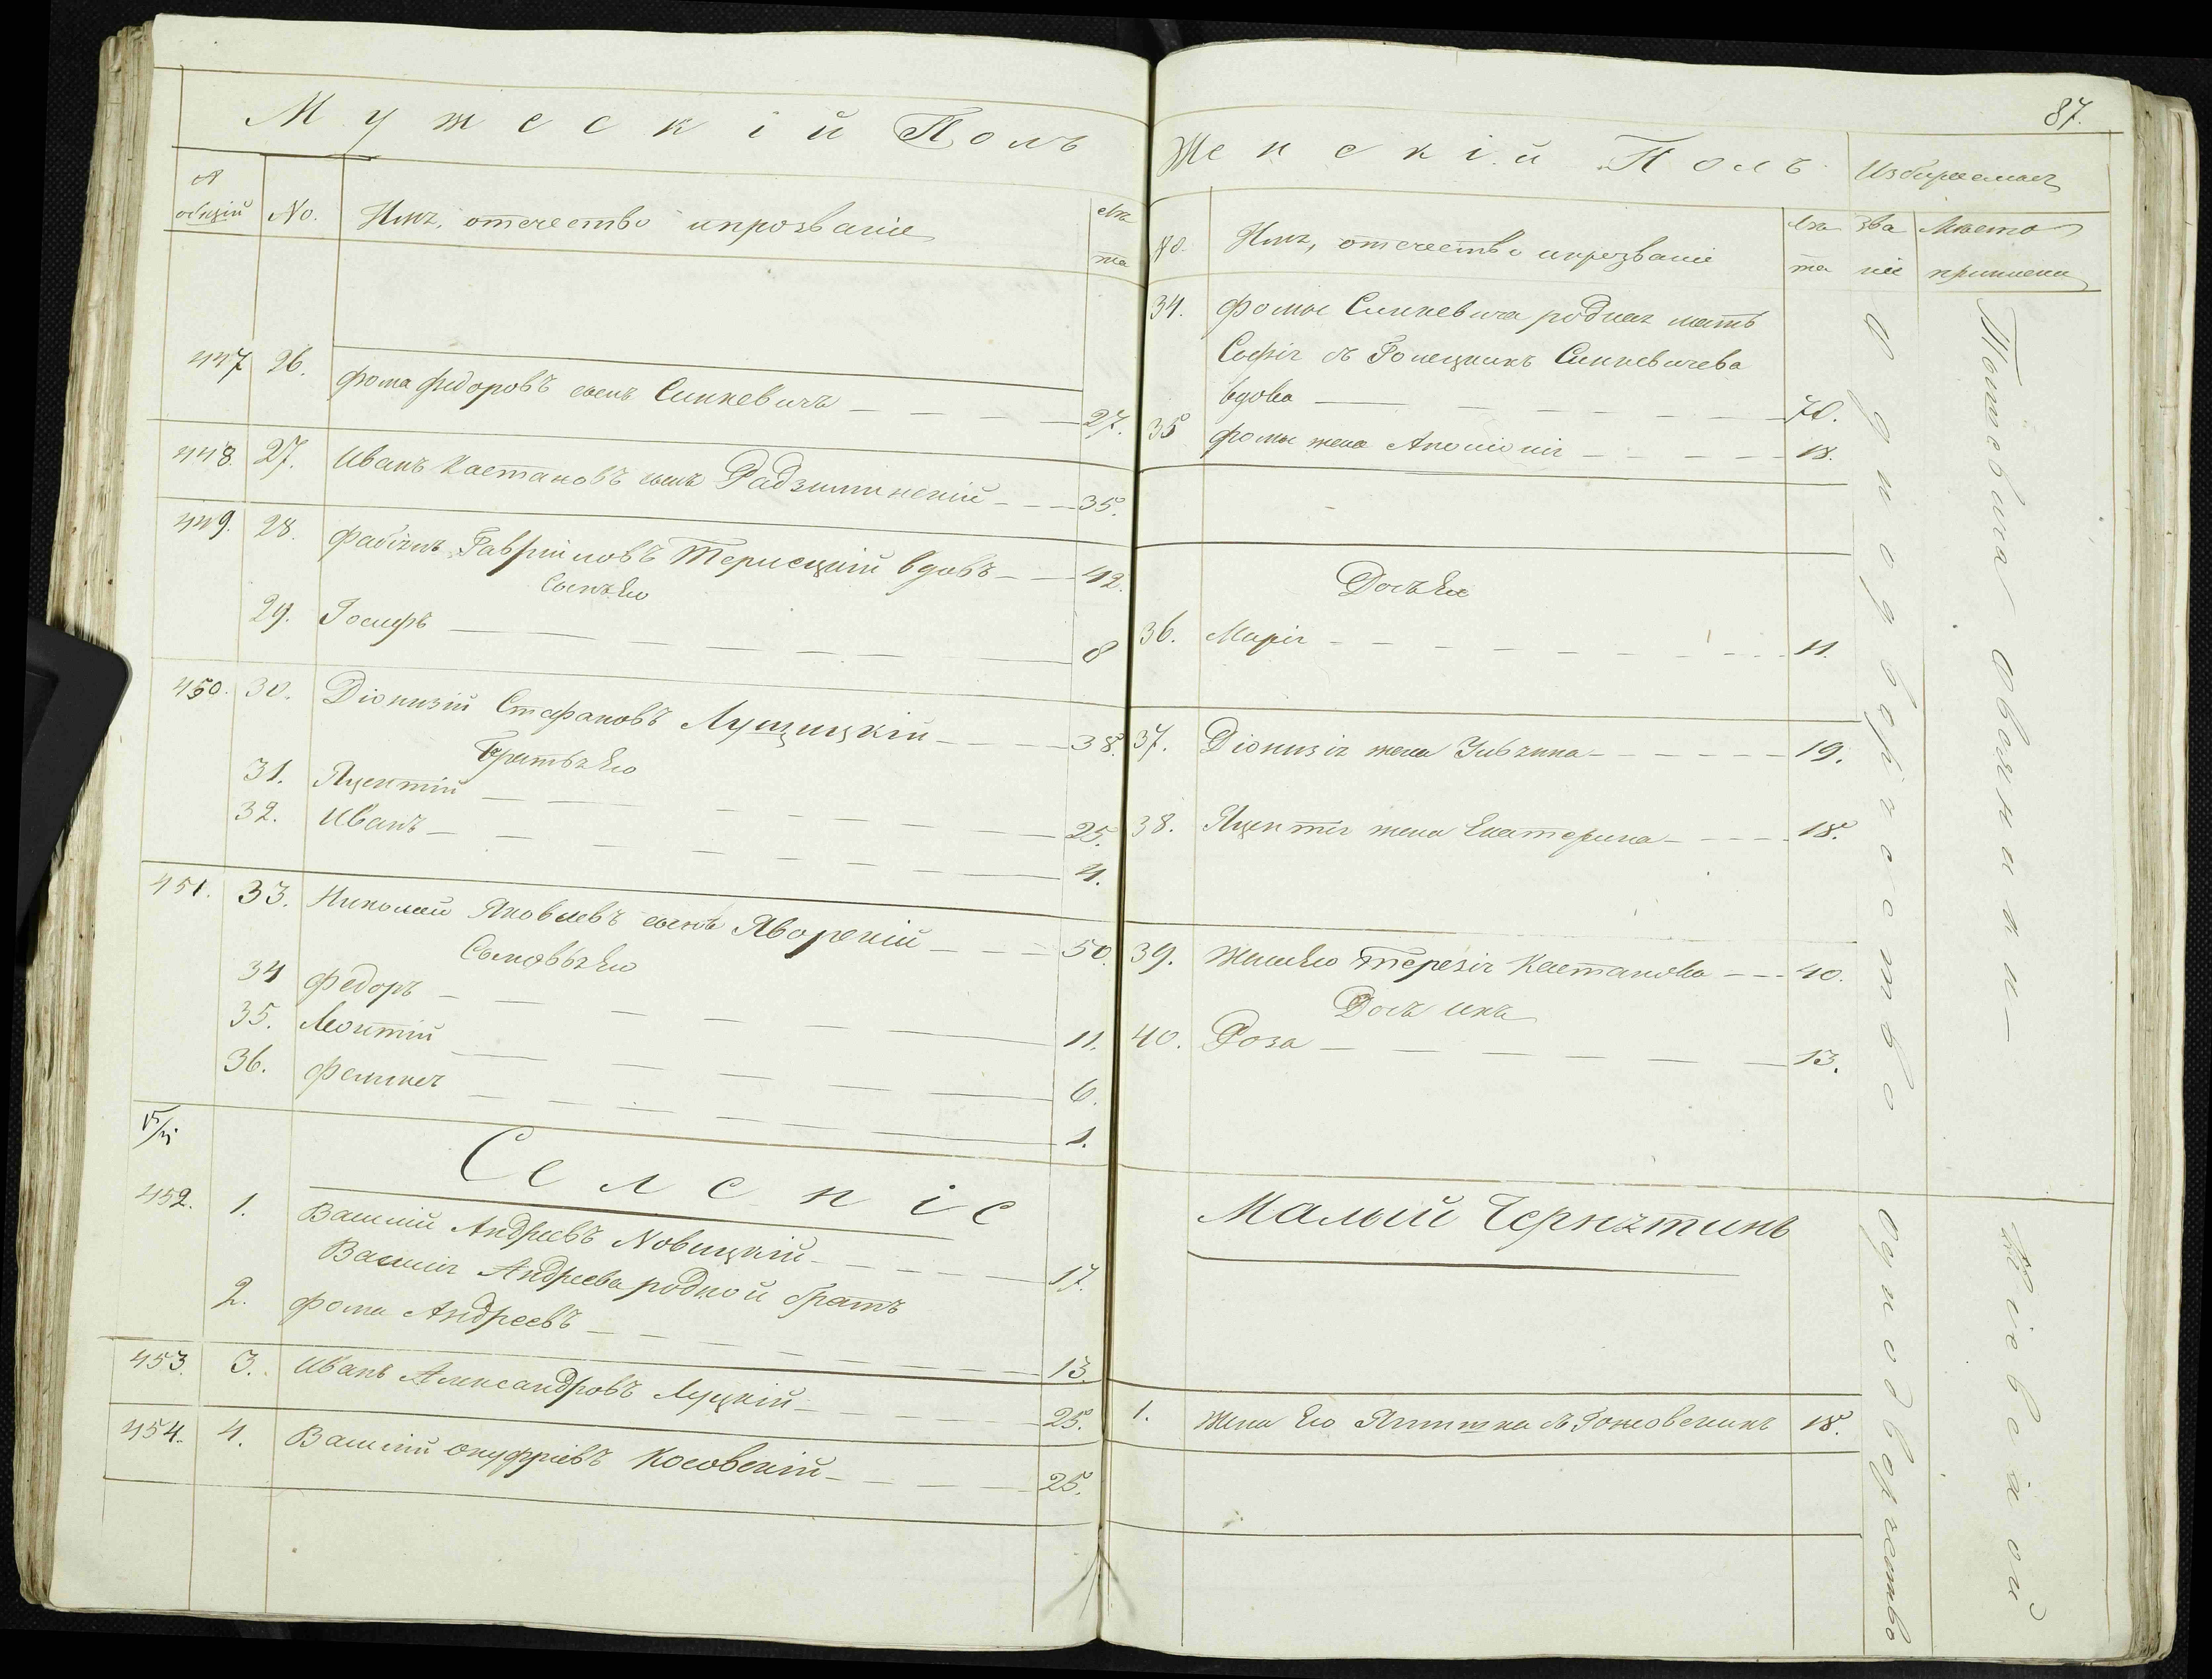 Мужескій Полъ
№ общій
No.
Имя, отечество и прозваніе
лѣта
447 26. Фома Федоровъ сынъ Синкевичъ 27.
448. 27. Иванъ Каетановъ сынъ Радзиминскій 35.
449. 28. Фабіянъ Гавріиловъ Терлецкій вдовъ 42.
Сынъ Его
29. Іосифъ 8
450. 30. Діонизій Стефановъ Лущицкій 38.
Братья Его
31. Яцентій 25.
32. Иванъ 4.
451. 33. Николай Яковлевъ сынъ Яворскій 50.
Сыновья Его
34 Федоръ 11.
35. Леонтій 6.
36. Феликсъ 1.
Селеніе
452. 1. Василій Андреевъ Новицкій 17.
Василія Андреева родной братъ
2. Фома Андреевъ 13.
453. 3. Иванъ Александровъ Луцкій 25.
454. 4. Василій Онуфріевъ Косовскій 25.
87.
Женскій Полъ
Избираемая
No.
Имя, отечество и прозваніе
лѣта
званіе
Мѣсто приписки
34. Фомы Синкевича родная мать
Софія съ Синкевичева
вдова 70.
35 Фомы жена Аполонія 18.
Дочь Его
36. Марія 11.
37. Діонизія жена 19.
38. Яцентія жена Екатерина 18.
39. Жена Его Терезія Каетанова 40.
Дочь ихъ
40. Роза 13.
Малый Чернятинъ
1. Жена Его съ 18.
Однодворчество
Однодворчество
Кіевской